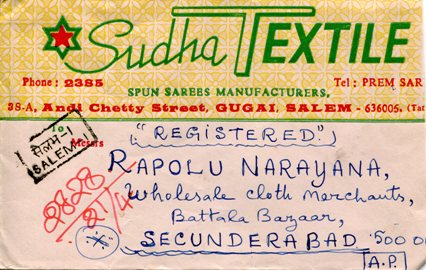 Sudha TEXTILE
Phone: 2385
Tel: PREM SAR
SPUN SAREES MANUFACTURERS,
38-A, Andi Chetty Street, GUGAI, SALEM - 636005. (Tar
To
Messrs
सेलम-1
SALEM-1
"REGISTERED"
RAPOLU NARAYANA,
Wholesale cloth Merchants,
Battala Bazaar,
SECUNDERABAD 500 0
A.P.
2828
21/4